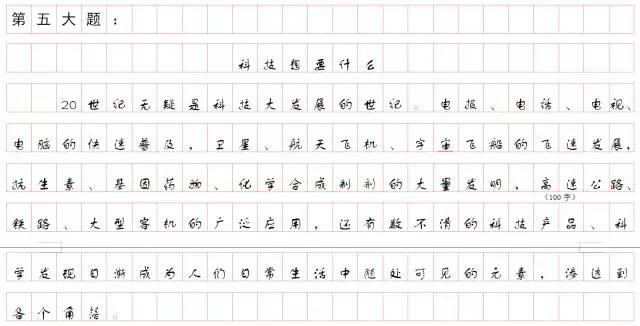 第五大题：
科技想要什么
20世纪无疑是科技大发展的世纪。电报、电话、电视、
电脑的快速普及，卫星、航天飞机、宇宙飞船的飞速发展，
抗生素、基因药物、化学合成制剂的大量发明，高速公路、
（100字）
铁路、大型客机的广泛应用，还有数不清的科技产品、科
学发现日渐成为人们日常生活中随处可见的元素，渗透到
各个角落。